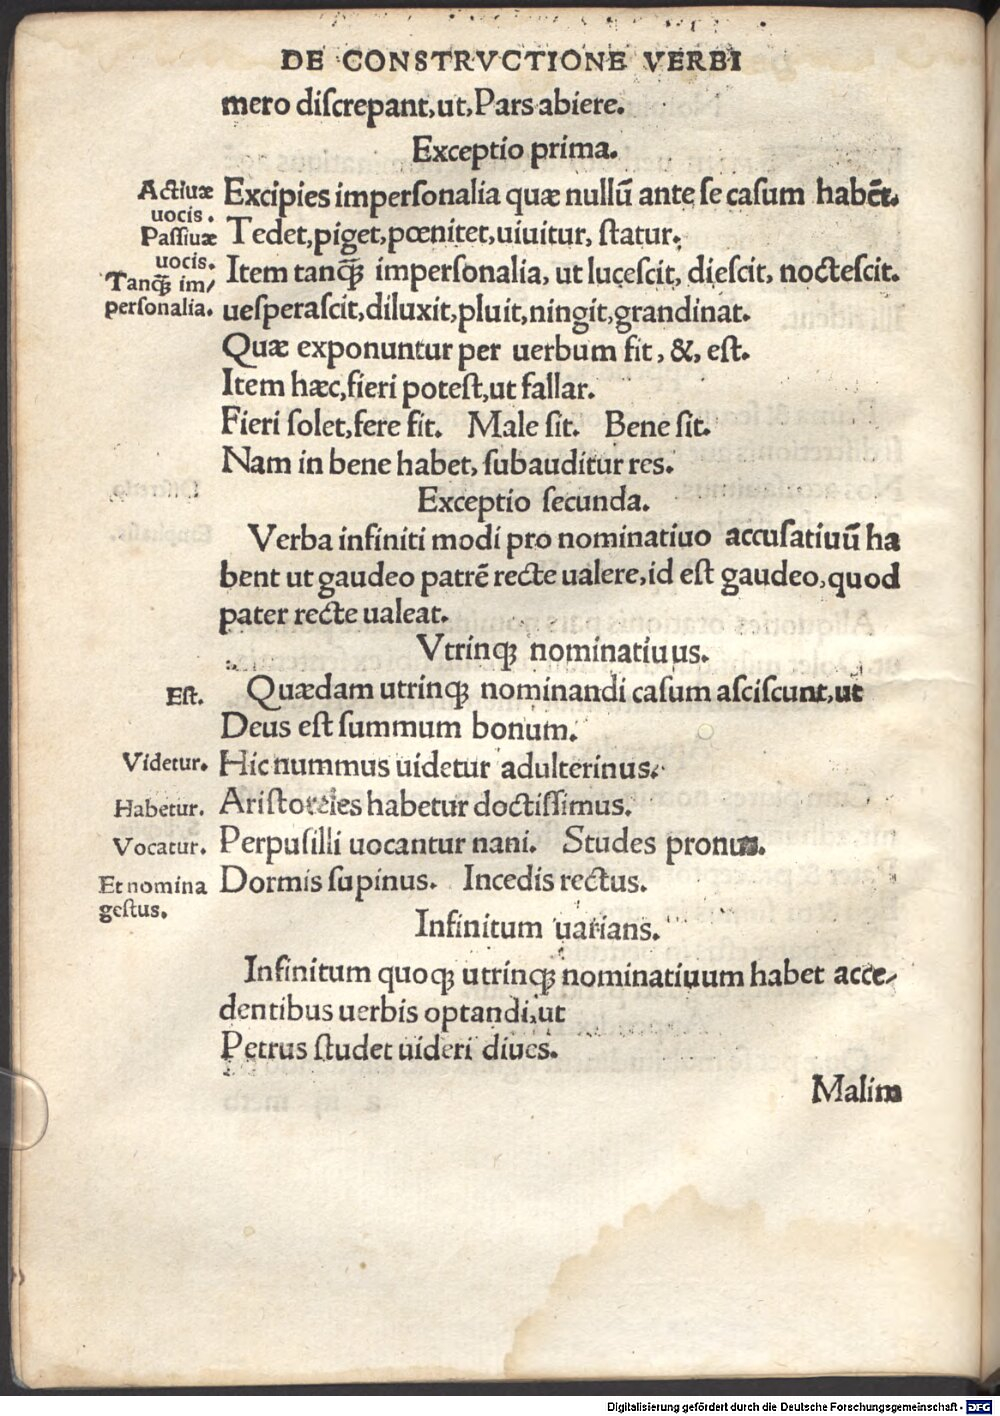 DE CONSTRVCTIONE VERBI
mero diſcrepant,ut,Pars abiere.
Exceptio prima.
Actiuæ
uocis.
Excipies imperſonalia quæ nullū ante ſe caſum habēt.
Paſſiuæ
uocis.
Tedet,piget,pœnitet,uiuitur, ſtatur.
Tanꝗ̃ im/
perſonalia.
Item tanꝗ̃ imperſonalia, ut luceſcit, dieſcit, nocteſcit.
ueſperaſcit,diluxit,pluit,ningit,grandinat.
Quæ exponuntur per uerbum fit, &, eſt.
Item hæc,fieri poteſt,ut fallar.
Fieri ſolet,fere fit. Male ſit. Bene ſit.
Nam in bene habet, ſubauditur res.
Exceptio ſecunda.
Verba infiniti modi pro nominatiuo accuſatiuū ha
bent ut gaudeo patrē recte ualere,id eſt gaudeo,quod
pater recte ualeat.
Vtrinꝗ nominatiuus.
Eſt.
Quædam utrinꝗ nominandi caſum aſciſcunt,ut
Deus eſt ſummum bonum.
Videtur.
Hic nummus uidetur adulterinus.
Habetur.
Ariſtoteles habetur doctiſſimus.
Vocatur.
Perpuſilli uocantur nani. Studes pronus.
Et nomina
geſtus.
Dormis ſupinus. Incedis rectus.
Infinitum uarians.
Infinitum quoꝗ utrinꝗ nominatiuum habet acce/
dentibus uerbis optandi,ut
Petrus ſtudet uideri diues.
Malim
Digitalisierung gefördert durch die Deutsche Forschungsgemeinschaft - DFG